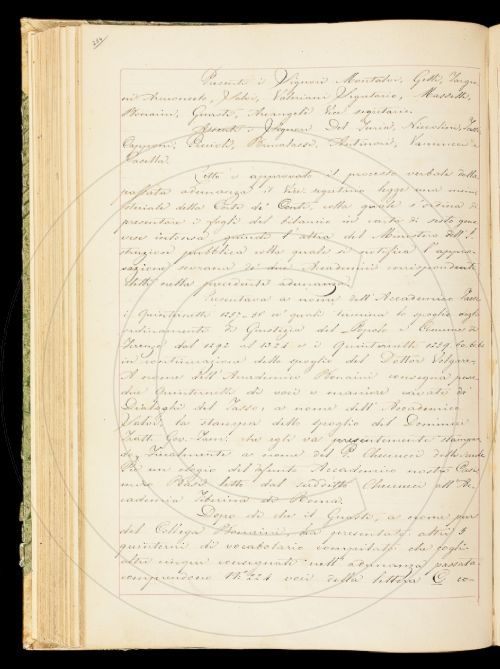 Presenti i Signori Montalvi, Gelli, Targio-
ni, Valeriani Segretario,
Bonaini, Guasti, Arcangeli Vice segretario.
Assenti i Signori Del Furia, Niccolini,
Capponi, Antinori, Vannucci e
Letto e approvato il processo verbale della
passata adunanza il Vice segretario legge una
della Corte de' Conti, colla quale s'ordina di
presentare i fogli del bilancio in carta di sesto
e quindi l'altra del Ministero dell'I-
struzione pubblica colla quale si notifica l'appro-
vazione sovrana di due Accademici corrispondenti
eletti nella precedente adunanza.
Presentava a nome dell'Accademico
i Quinternetti a quali termina lo spoglio degli
ordinamenti di Giustizia del Popolo e Comune di
Firenze dal 1292 al 1324 e i Quinternetti
in continuazione dello spoglio del Dottor Volgare.
A nome dell'Accademico Bonaini consegna pure
due Quinternetti di voci e maniere cavate di
Dialoghi del Tasso, a nome dell'Accademico
la stampa dello spoglio del Dominici
Tratt. Gov. Fam. che egli va presentemente stampan-
do. Finalmente a nome del P. Checcucci delle scuole
Pie un elogio del defunto Accademico nostro Casi-
miro Basi letto dal suddetto Checcucci all'Ac-
cademia Tiberina di Roma.
Dopo di che il Guasti, a nome pur
del Collega Bonaini, ha presentati altri 3
quinterni di vocabolario compilato che fogli
altri cinque consegnati nell'adunanza passata
comprendono N.° 224 voci della lettera C co-